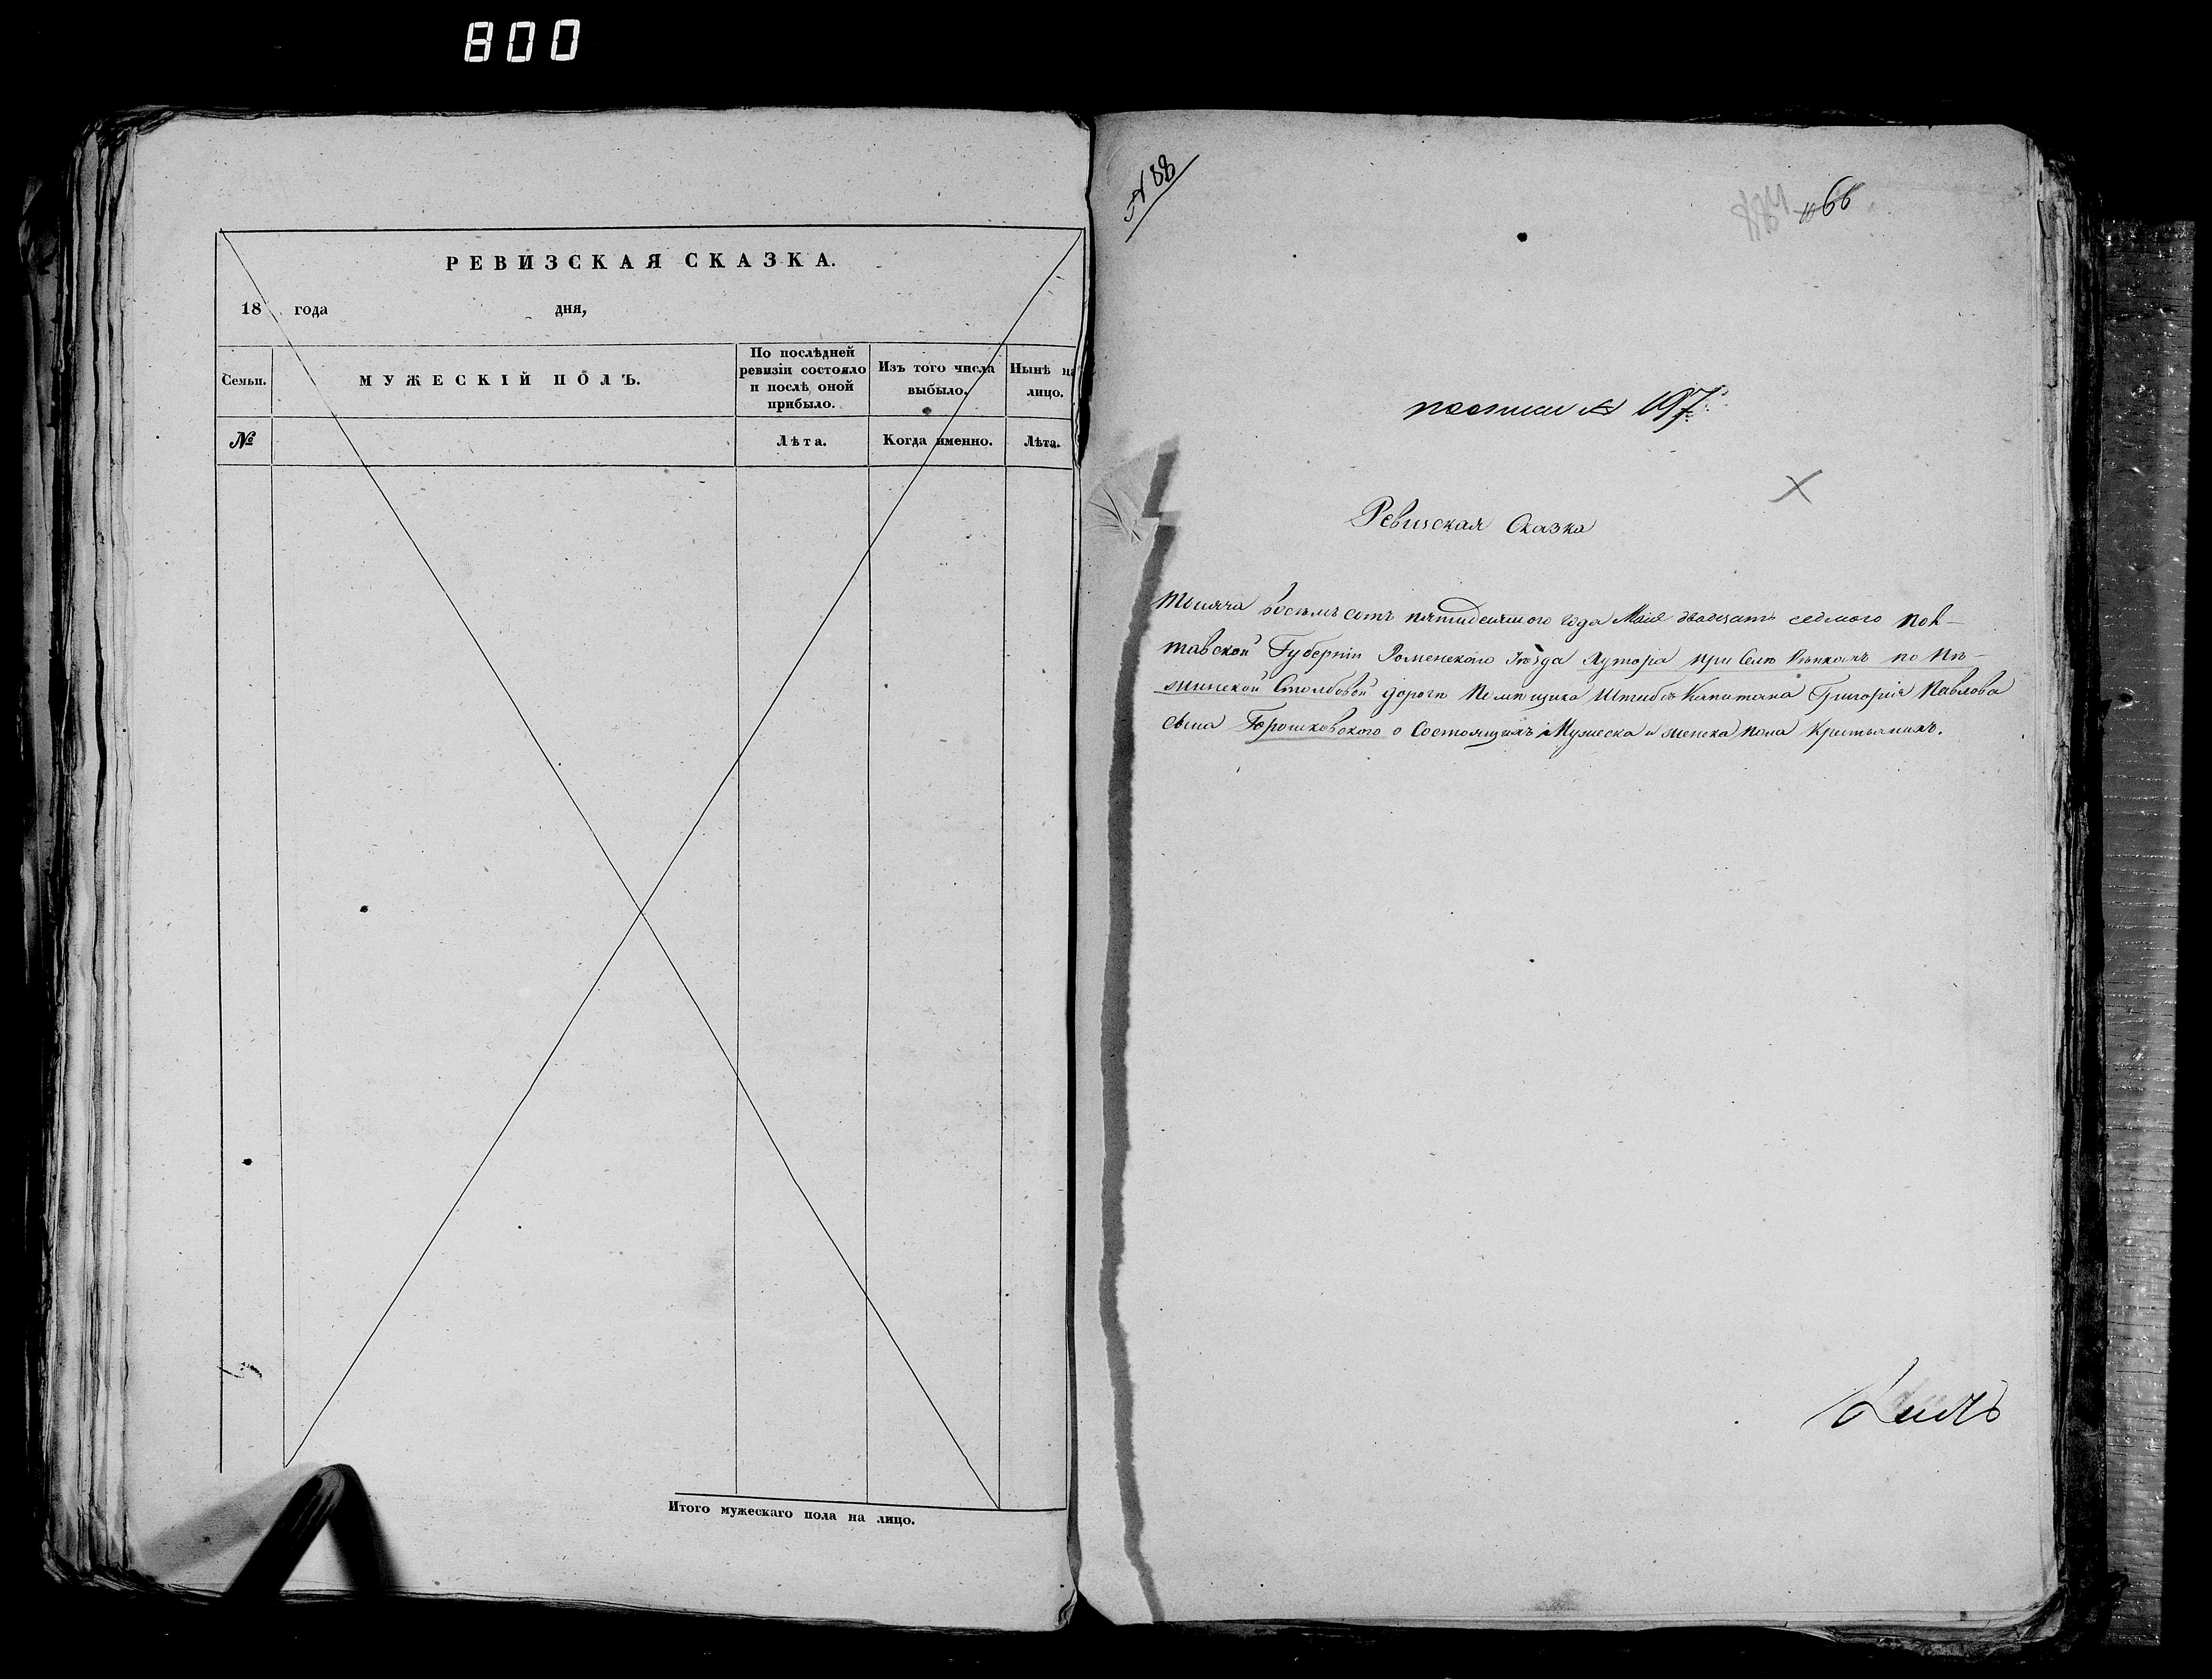 800
РЕВИЗСКАЯ СКАЗКА.
18 года дня,
Семьи.
МУЖЕСКІЙ ПОЛЪ.
По послѣдней
ревизіи состояло
и послѣ оной
прибыло.
Изъ того числа
выбыло.
Нынѣ на
лицо.
№
Лѣта.
Когда именно.
Лѣта.
Итого мужескаго пола на лицо.
№ 88
66
№ 197
Ревизская Сказка
Тысяча восемь сотъ пятидесятого года Маія двадцать седмого Пол-
тавской Губерніи Роменского Уѣзда Хутора при Селѣ по Нѣ-
жинской Столбовой дороги Помѣщика Штабсъ Капитана Григорія Павлова
сына Горошковского о Состоящихъ Мужеска и женска пола Крестьянахъ.